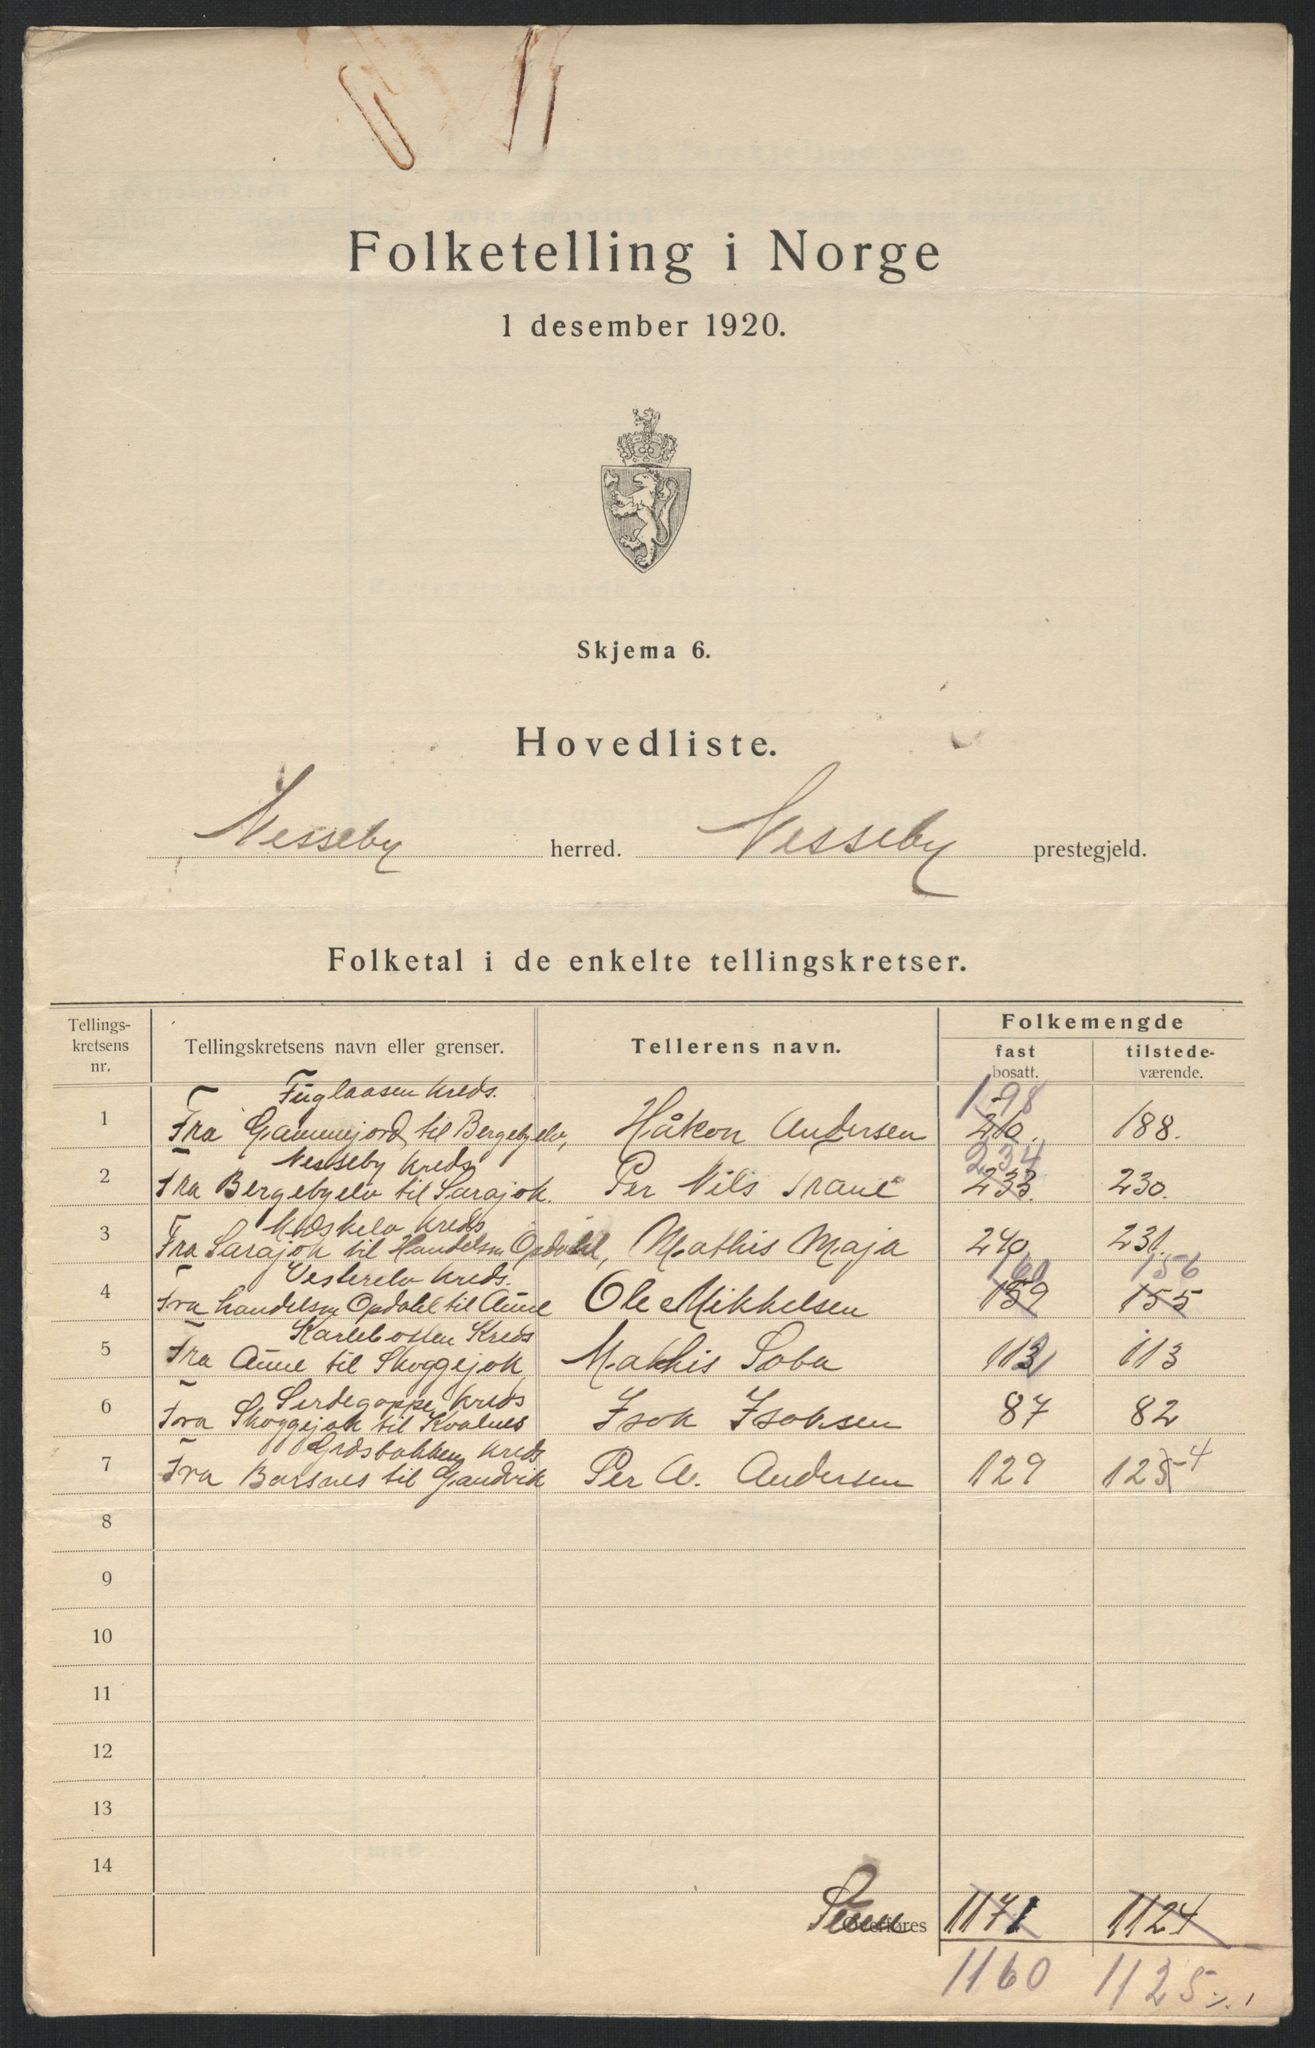 Folketelling i Norge
1 desember 1920.
Skjema 6.
Hovedliste.
Nesseby herred. Nesseby prestegjeld.
Folketal i de enkelte tellingskretser.
Tellings-
kretsens
nr.
Tellingskretsens navn eller grenser.
Tellerens navn.
Folkemengde
fast
bosatt.
tilstede-
værende.
Fuglaasen Kreds. 198
1 Fra Gammejord til Bergebyelv, Håkon Andersen 210. 188.
Nesseby Kreds 234
2 Fra Bergebyelv til Sarajok. Per Nils Trane 233 230.
Mæskelv Kreds
3 Fra Sarajok til Handelsm Opdahl, Mathis Maja 240 231.
Vesterelv Kreds. 160 156
4 Fra handelsm Opdahl til Aune Ole Mikkelsen 159 155
Karlebotten Kreds
5 Fra Aune til Skoggejok Mathis Soba 113
Sirdegoppe Kreds
6 Fra Skoggejok til Kvalnes Isak Isaksen 87 82
Græsbakken Kreds
7 Fra Barsnes til Gandvik Per A. Andersen 129 125 4
8
9
10
11
12
13
14
Sum Overføres 1171 1124
1160 1125